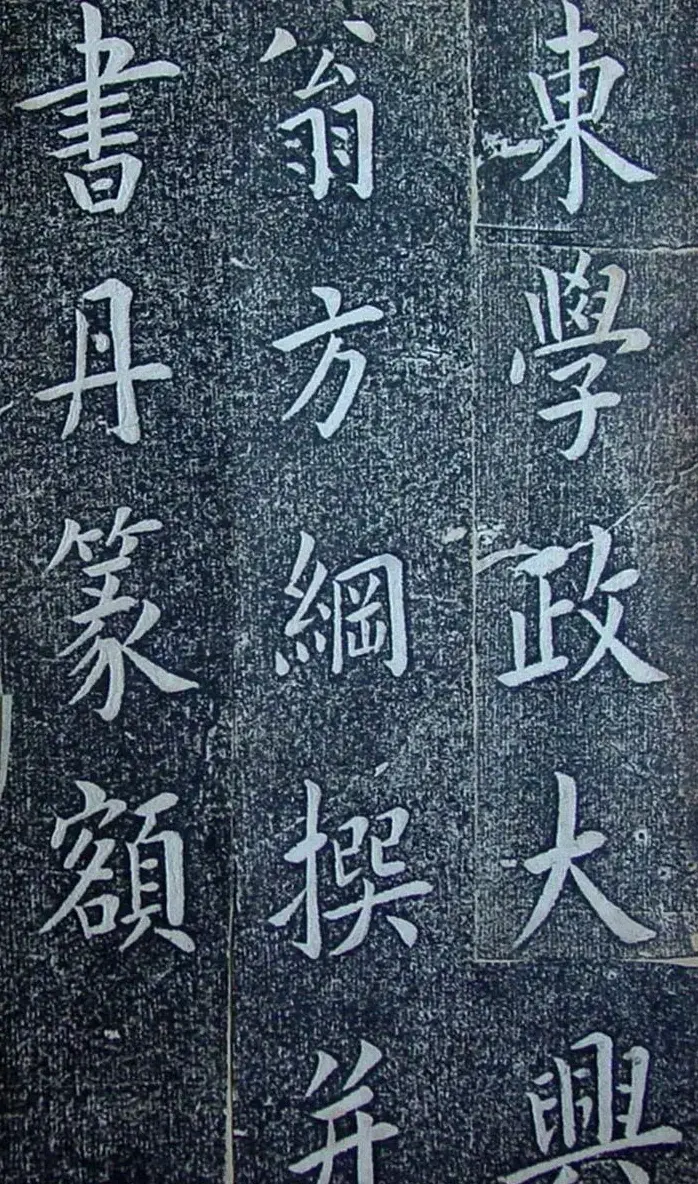 東學政大興
翁方綱撰并
書丹篆額